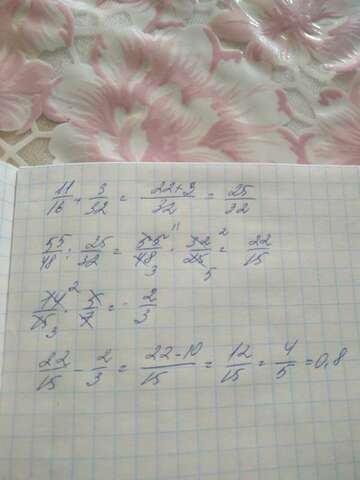 11/16 + 3/32 = 22+3/32 = 25/32
55/48 : 25/32 = 55 11/48 3 · 32 2/25 5 = 22/15
14 2/15 3 · 5/7 = 2/3
22/15 - 2/3 = 22-10/15 = 12/15 = 4/5 = 0,8